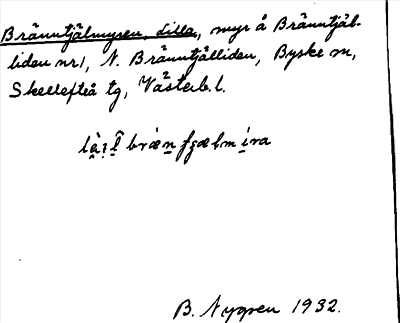 Bränntjälmyren, Lilla, myr å Bränntjäl-
liden nr 1, N. Bränntjälliden, Byske sn,
Skellefteå tg, Västerb. l.
B. Nygren 1932.